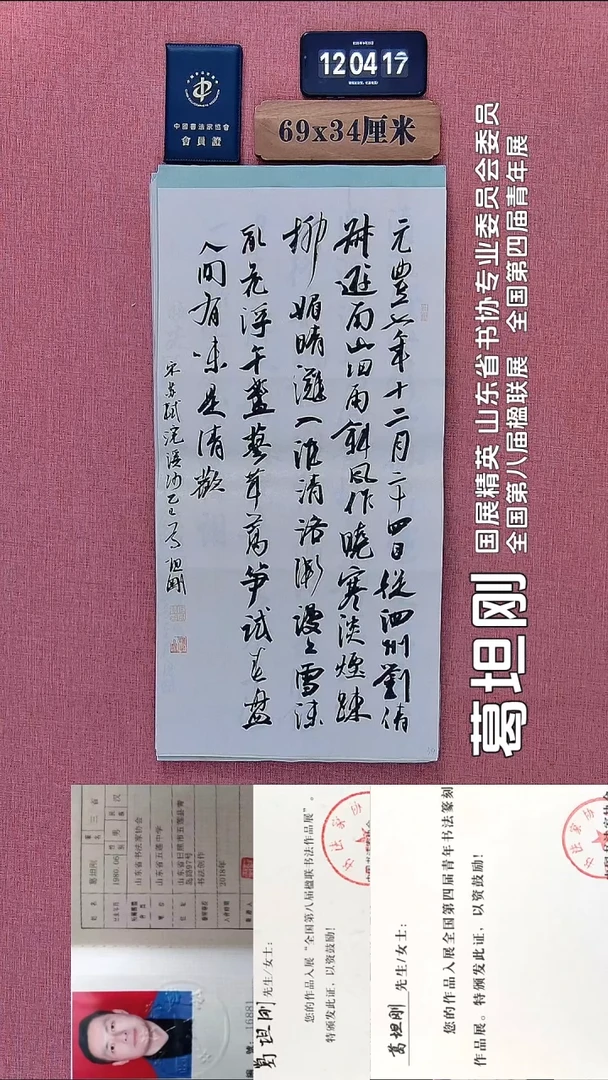 中國書法家協會
會員證
12 04 17
69x34厘米
元豐七年十二月二十四日從泗州劉倩
叔遊南山細雨斜風作曉寒淡煙疎
柳媚晴灘入淮清洛漸漫漫雪沫
乳花浮午盞蓼茸蒿筍試春盤
人間有味是清歡
宋蘇軾浣溪沙乙巳 葛坦剛
国展精英 山东省书协专业委员会委员
全国第八届楹联展 全国第四届青年展
葛坦刚
姓名 葛坦刚
山东省书法家协会
山东省五莲中学
书法创作
2018年
16881
葛坦刚 先生/女士:
您的作品入展“全国第八届楹联书法作品展”。
特颁发此证,以资鼓励!
葛坦刚 先生/女士:
您的作品入展全国第四届青年书法篆刻
作品展。特颁发此证,以资鼓励!